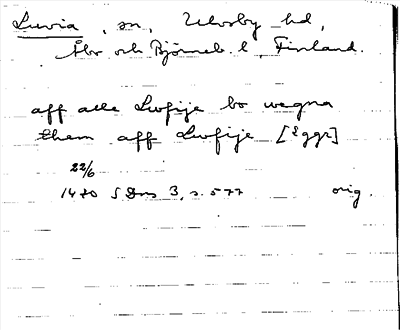 Luvia, sn, Ulvsby hd,
Åbo och Björneb. l, Finland.
aff alle Lwfije bo wegna
them aff Lwfije [Eggr]
22/6
1470 SDns 3, s. 577 orig.